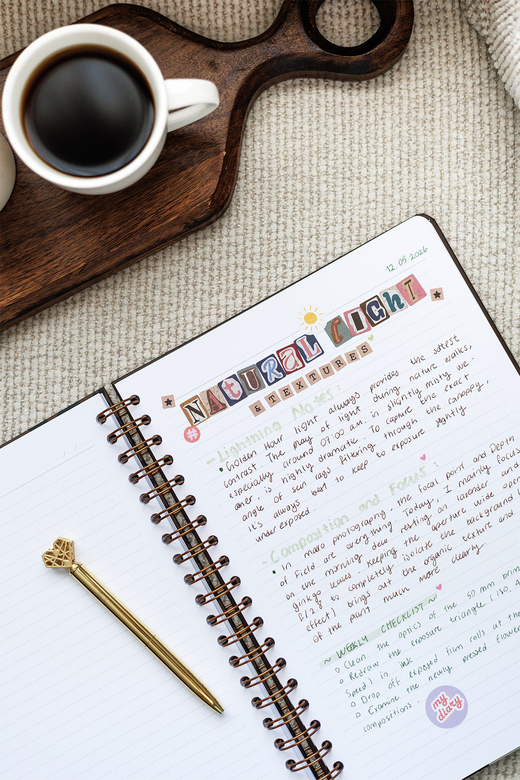 12.05.2026
NATURAL LIGHT
& TEXTURES
#
- Lightning Notes:
• Golden Hour light always provides the softest
contrast. The play of light during nature walks,
especially around 07:00 a.m. in slightly misty we-
ather, is highly dramatic. To capture the exact
angle of sun rays filtering through the canopy,
it's always best to keep to exposure slightly
underexposed.
- Composition and Focus:
• In macro photography, the focal point and Depth
of Field are everything. Today, I mainly focused
on the morning dew resting on lavender and
ginkgo leaves. Keeping the aperture wide open
(f/2.8 to completely isolate the background
effect) brings out the organic texture and
of the plant much more clearly.
~ WEEKLY CHECKLIST ~
o Clean the optics of the 50 mm prime
o Redraw the exposure triangle (ISO,
Speed) in ink
o Drop off exposed film rolls at the
o Examine the newly pressed flower
compositions.
my
diary